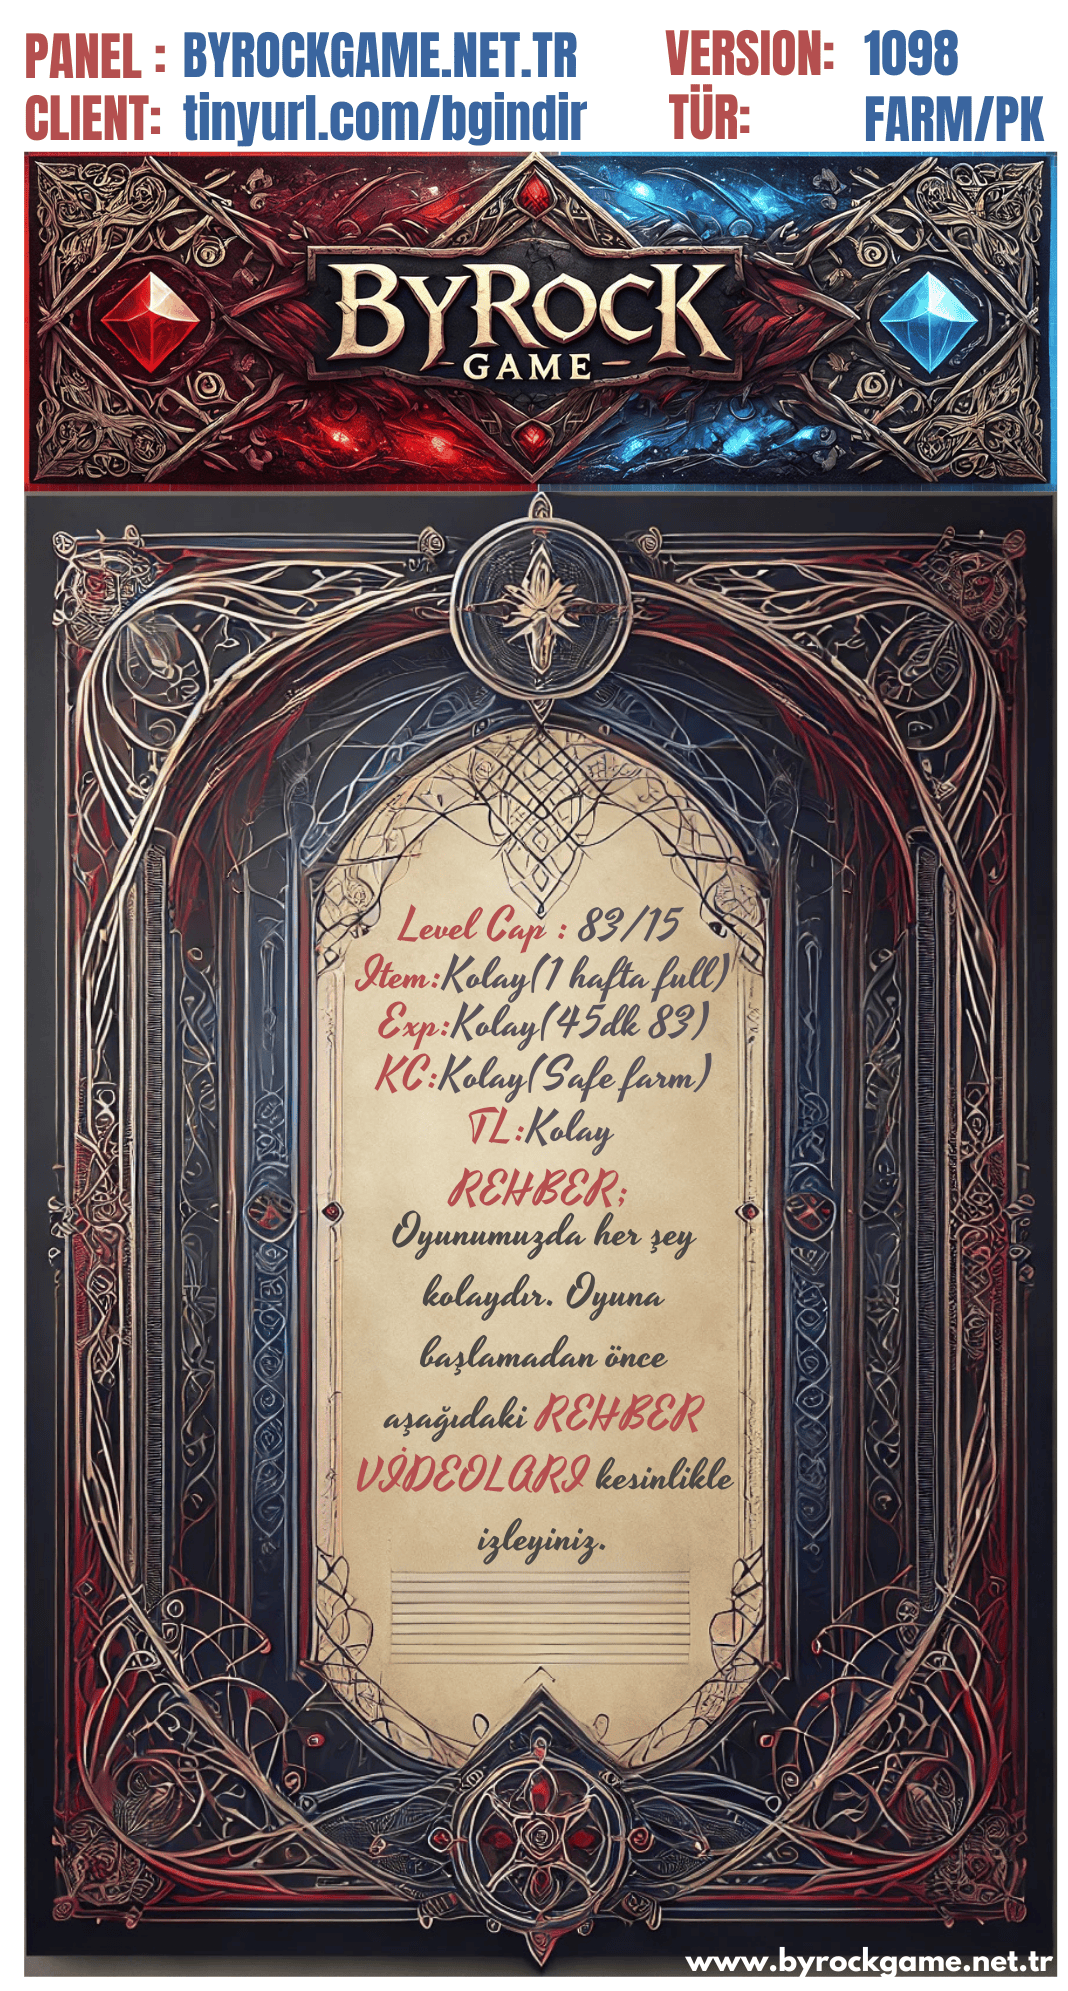 PANEL : BYROCKGAME.NET.TR VERSION: 1098
CLIENT: tinyurl.com/bgindir TÜR: FARM/PK
BYROCK
GAME
Level Cap : 83/15
Item:Kolay(1 hafta full)
Exp:Kolay(45dk 83)
KC:Kolay(Safe farm)
TL:Kolay
REHBER;
Oyunumuzda her şey
kolaydır. Oyuna
başlamadan önce
aşağıdaki REHBER
VİDEOLARI kesinlikle
izleyiniz.
www.byrockgame.net.tr